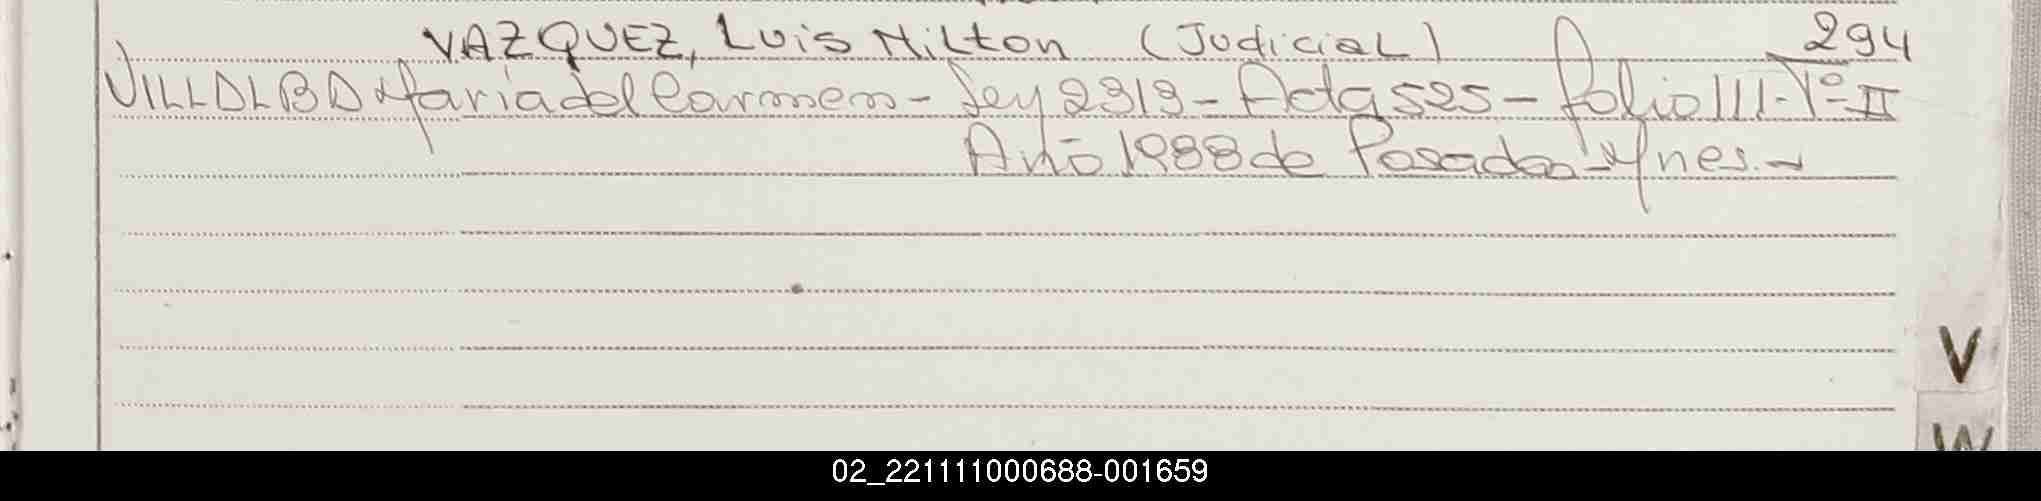 VAZQUEZ, Luis Milton (Judicial) 294
VILLALBA Maria del Carmen - Ley 2319 - Acta 525 - folio 111 - Tº - II
Año 1988 de Posadas - Mnes. -
V
W
02_221111000688-001659